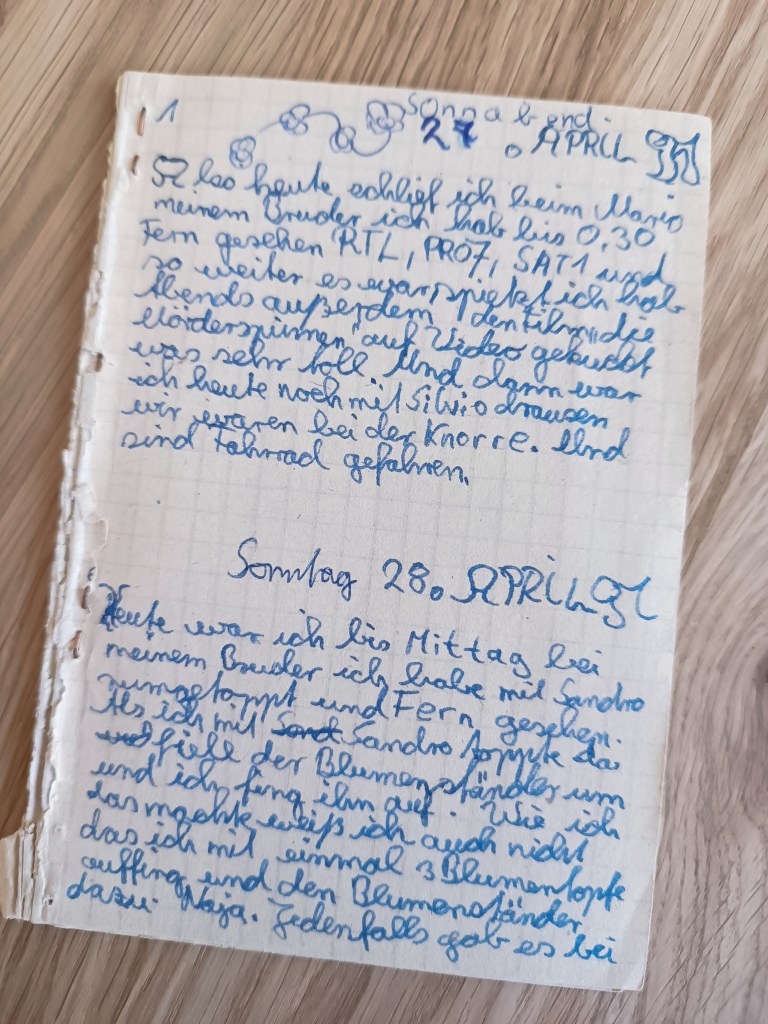 1
Sonnabend.
27. APRIL 91
Also heute schlief ich beim Mario
meinem Bruder ich hab bis 0,30
Fern gesehen RTL, PRO7, SAT1 und
so weiter es war spietze ich hab
Abends außerdem den Film „die
Mörderspinnen" auf Video gekuckt
was sehr toll Und dann war
ich heute noch mit Silvio drausen
wir waren bei der Knorre. Und
sind Fahrrad gefahren.
Sonntag 28. APRIL 91
Heute war ich bis Mittag bei
meinem Bruder ich habe mit Sandro
rumgetoppt und Fern gesehen.
Als ich mit Sandro toppte da
fiell der Blumenständer um
und ich fing ihn auf. Wie ich
das machte weiß ich auch nicht
das ich mit einmal 3 Blumentopfe
auffing und den Blumenständer
dazu. Naja. Jedenfalls gab es bei